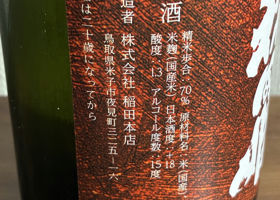 酒
精米歩合・70% 原材料名・米(国産)
米麹(国産米) 日本酒度・+18
酸度・1.3 アルコール度数・15度
造者 株式会社 稲田本店
鳥取県米子市夜見町三二五-一六
は二十歳になってから